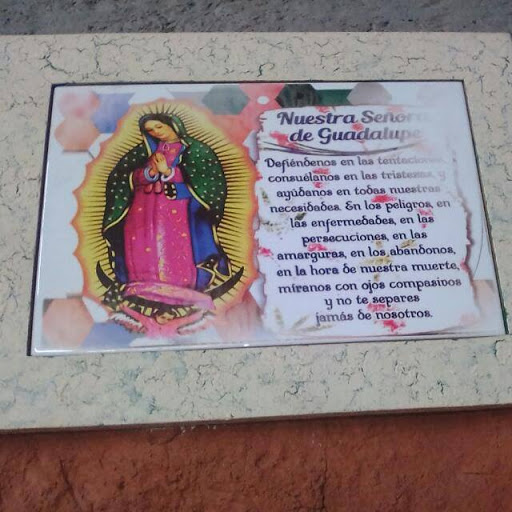 Nuestra Señora
de Guadalupe
Defiéndenos en las tentaciones,
consuélanos en las tristezas, y
ayúdanos en todas nuestras
necesidades. En los peligros, en
las enfermedades, en las
persecuciones, en las
amarguras, en los abandonos,
en la hora de nuestra muerte,
míranos con ojos compasivos
y no te separes
jamás de nosotros.